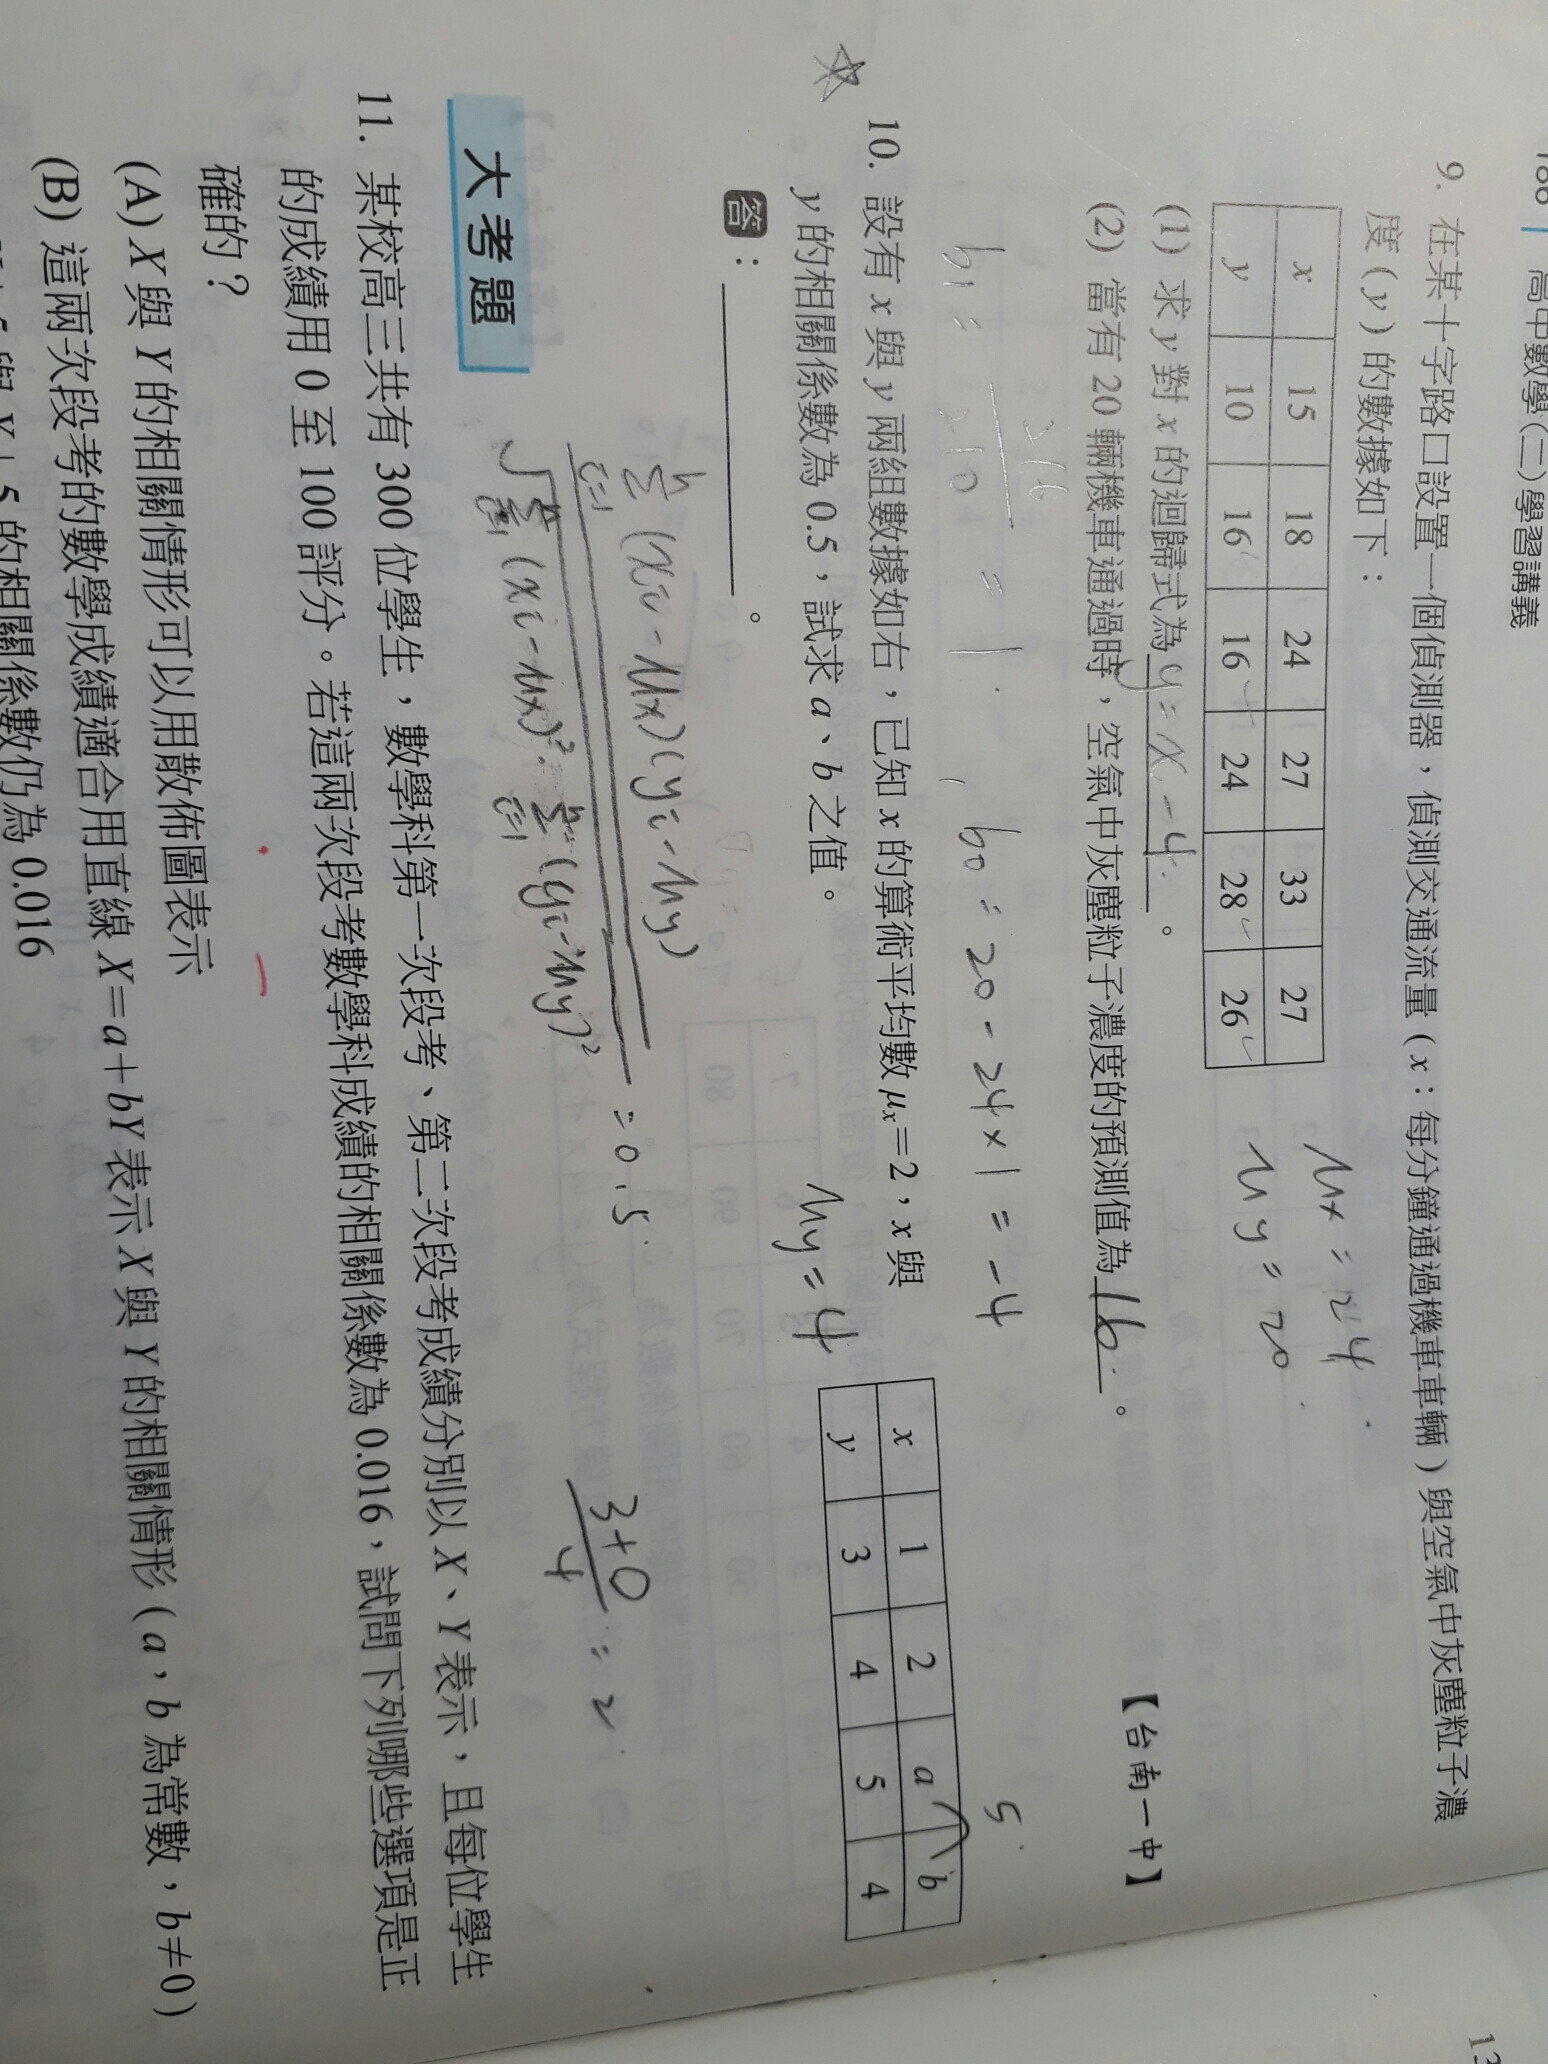 高中數學(二)學習講義
9. 在某十字路口設置一個偵測器，偵測交通流量(x：每分鐘通過機車車輛)與空氣中灰塵粒子濃
度(y)的數據如下：
x 15 18 24 27 33 27
y 10 16 16 24 28 26
μx = 24
μy = 20
(1) 求 y 對 x 的迴歸式為 y = x - 4 。
(2) 當有 20 輛機車通過時，空氣中灰塵粒子濃度的預測值為 16 。
【台南一中】
b1 = = 1
b0 = 20 - 24 × 1 = -4
5
10. 設有 x 與 y 兩組數據如右，已知 x 的算術平均數 μx=2，x 與
y 的相關係數為 0.5，試求 a、b 之值。
μy = 4
x 1 2 a b
y 3 4 5 4
答：
。
n Σ i=1 (xi - μx)(yi - μy)
√ n Σ i=1 (xi - μx)² · n Σ i=1 (yi - μy)² = 0.5
3+0
4 = 2
大考題
11. 某校高三共有 300 位學生，數學科第一次段考、第二次段考成績分別以 X、Y 表示，且每位學生
的成績用 0 至 100 評分。若這兩次段考數學科成績的相關係數為 0.016，試問下列哪些選項是正
確的？
(A) X 與 Y 的相關情形可以用散佈圖表示
(B) 這兩次段考的數學成績適合用直線 X=a+bY 表示 X 與 Y 的相關情形（a，b 為常數，b≠0）
的相關係數仍為 0.016